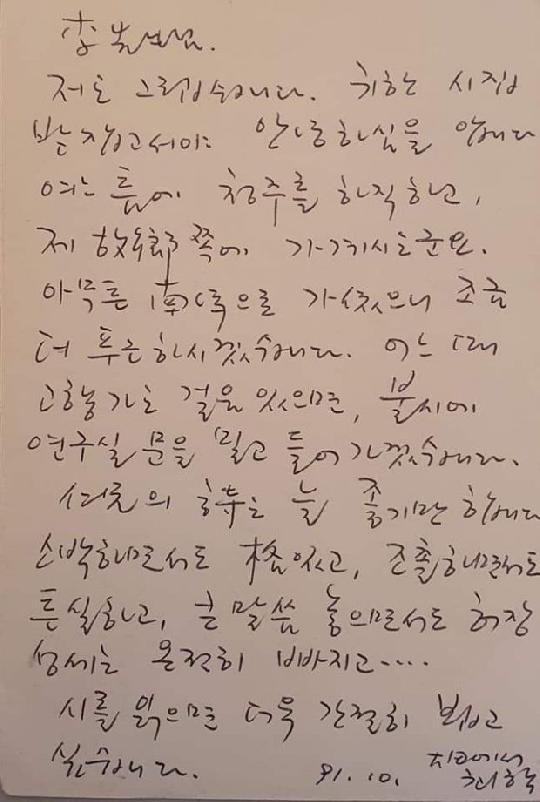 李 선생님.
저도 그립습니다. 귀하는 시집
받잡고서야 안녕하심을 압니다
어느 틈에 청주를 하직하고,
제 故鄕 쪽에 가 계시는군요.
아무튼 南쪽으로 가셨으니 조금
더 푸근하시겠습니다. 어느 때
고향 가는 걸음 있으면, 불시에
연구실 문을 밀고 들어가겠습니다.
의 詩는 늘 좋기만 합니다
소박하면서도 格있고, 조촐하면서도
튼실하고, 큰 말씀 놓으면서도 허장
성세는 온전히 빠지고····
시를 읽으면 더욱 간절히 뵙고
싶습니다. 91.10.